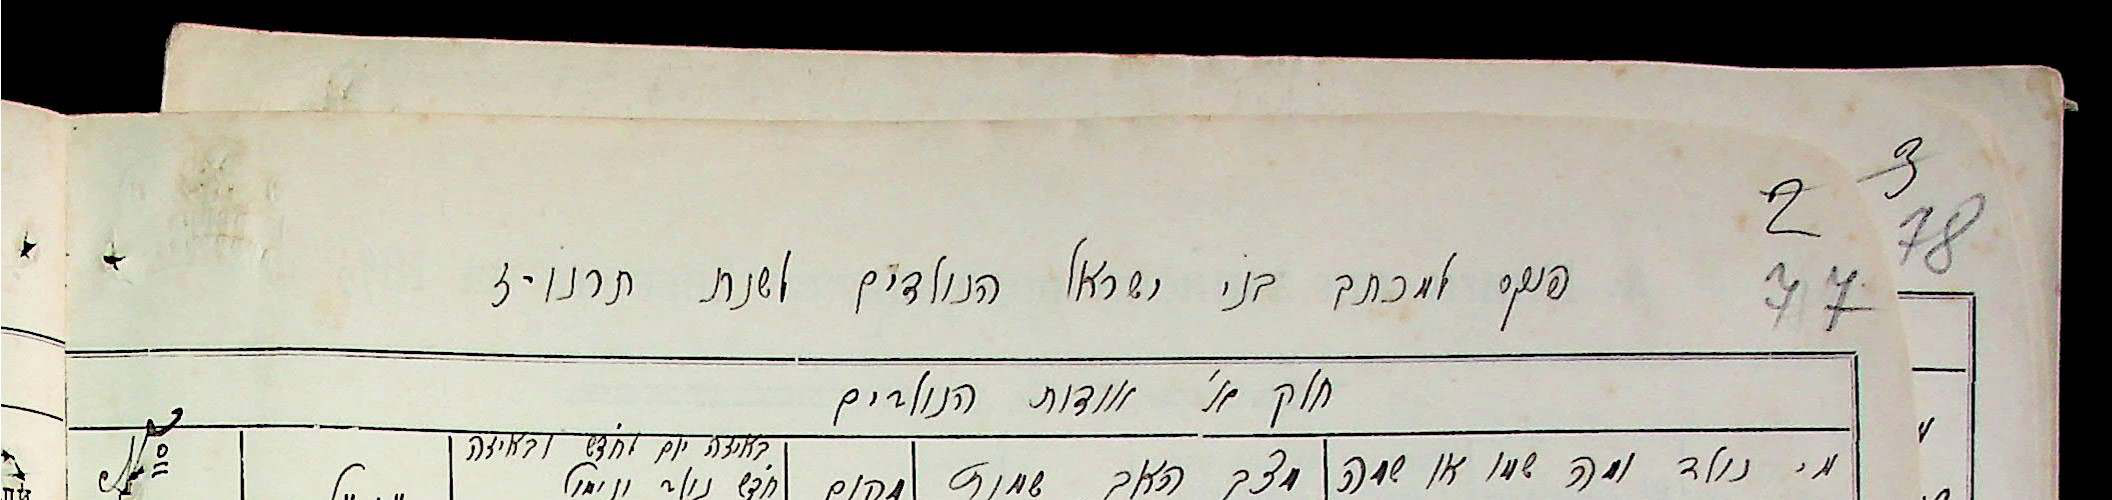 3
2
78
77
פנקס למכתב בני ישראל הנולדים לשנת תרנו-ז
חלק א׳ אודות הנולדים
מי נולד ומה שמו או שמה
מצב האב שמות
מקום
באיזה יום לחדש ובאיזה
חדש נולד ונימול